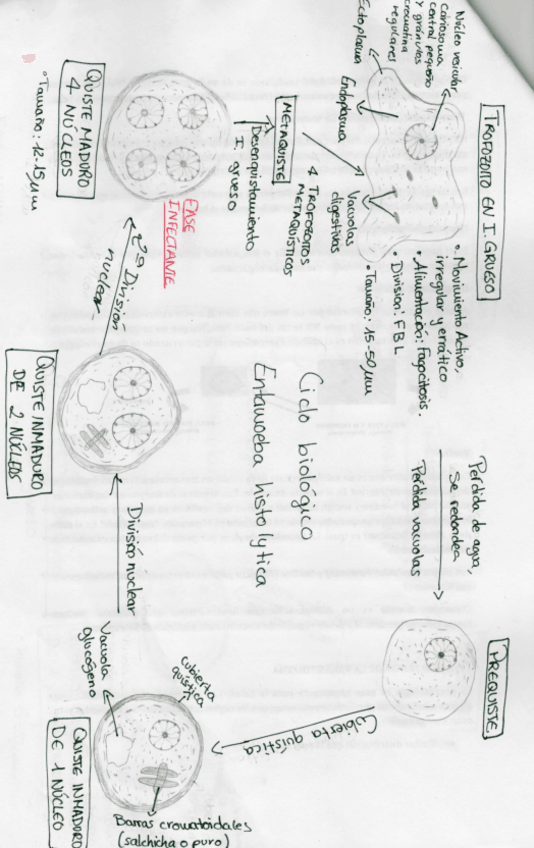 TROFOZOITO EN I. GRUESO
Núcleo vesicular
cariosoma
central pequeño
y gránulos
cromatina
regulares
Ectoplasma
Endoplasma
Vacuolas
digestivas
• Movimiento Activo,
irregular y errático
• Alimentación: Fagocitosis.
• División: FBL
• Tamaño: 15-50 µm
Pérdida de agua,
Se redondea
Pérdida vacuolas
PREQUISTE
Cubierta quística
QUISTE INMADURO
DE 1 NÚCLEO
Cubierta
quística
Vacuola
glucógeno
Barras cromatoidales
(salchicha o puro)
División nuclear
QUISTE INMADURO
DE 2 NÚCLEOS
2ª División
nuclear
QUISTE MADURO
4 NÚCLEOS
• Tamaño: 12-15 µm
FASE
INFECTANTE
Desenquistamiento
I. grueso
METAQUISTE
4 TROFOZOITOS
METAQUÍSTICOS
Ciclo biológico
Entamoeba histolytica